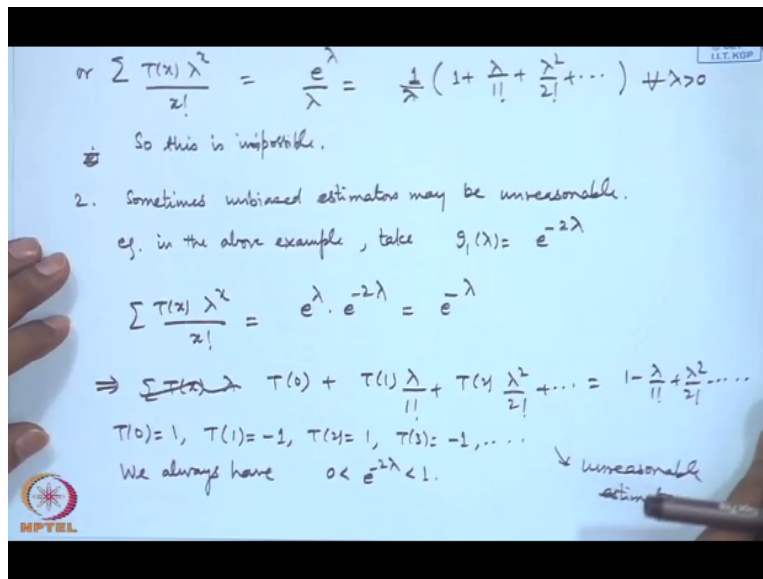 I.I.T. KGP
or ∑ T(x) λ^x / x! = e^λ / λ = 1/λ ( 1 + λ/1! + λ²/2! + ⋯ ) ∀ λ>0
So this is impossible.
2. Sometimes unbiased estimators may be unreasonable.
eg. in the above example, take g₁(λ) = e^{-2λ}
∑ T(x) λ^x / x! = e^λ · e^{-2λ} = e^{-λ}
⇒ T(0) + T(1) λ/1! + T(2) λ²/2! + ⋯ = 1 - λ/1! + λ²/2! ⋯
T(0)=1, T(1)=-1, T(2)=1, T(3)=-1, ⋯
We always have 0 < e^{-2λ} < 1.
↘ unreasonable
NPTEL